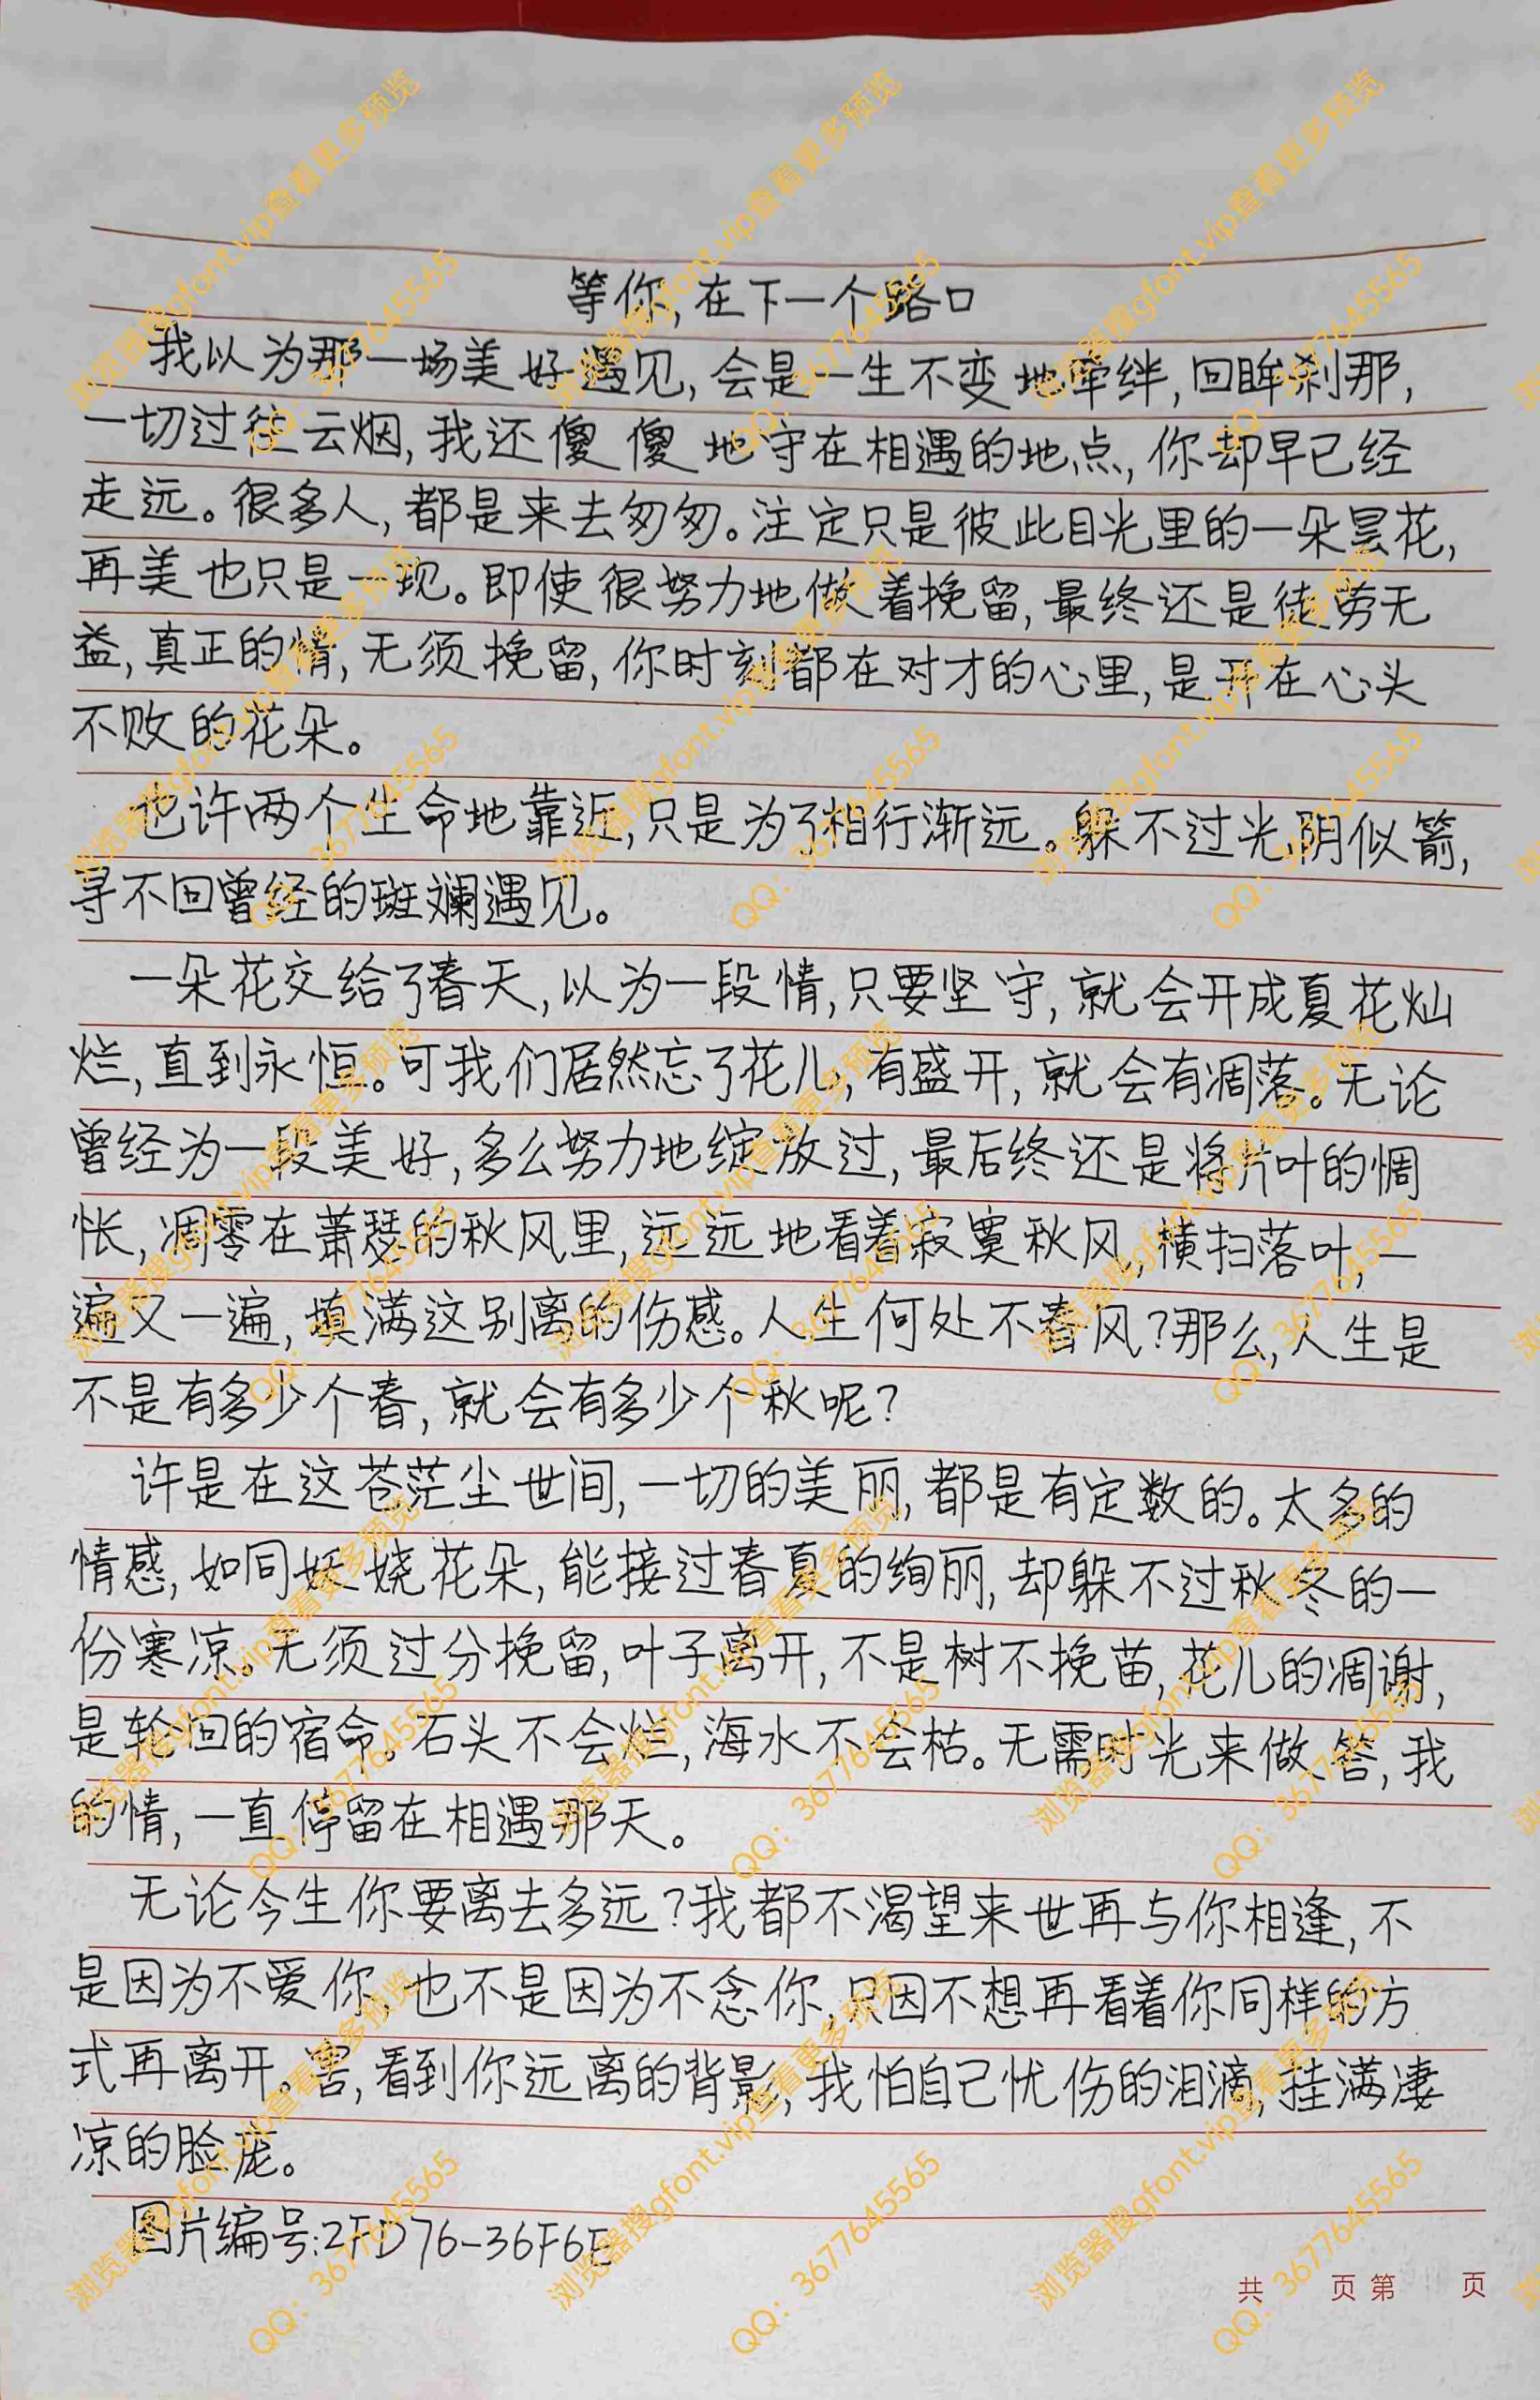 等你,在下一个路口
我以为那一场美好遇见,会是一生不变地牵绊,回眸刹那,
一切过往云烟,我还傻傻地守在相遇的地点,你却早已经
走远。很多人,都是来去匆匆。注定只是彼此目光里的一朵昙花,
再美也只是一现。即使很努力地做着挽留,最终还是徒劳无
益,真正的情,无须挽留,你时刻都在对才的心里,是开在心头
不败的花朵。
也许两个生命地靠近,只是为了相行渐远。躲不过光阴似箭,
寻不回曾经的斑斓遇见。
一朵花交给了春天,以为一段情,只要坚守,就会开成夏花灿
烂,直到永恒。可我们居然忘了花儿,有盛开,就会有凋落。无论
曾经为一段美好,多么努力地绽放过,最后终还是将片叶的惆
怅,凋零在萧瑟的秋风里,远远地看着寂寞秋风,横扫落叶,一
遍又一遍,填满这别离的伤感。人生何处不春风?那么,人生是
不是有多少个春,就会有多少个秋呢?
许是在这苍茫尘世间,一切的美丽,都是有定数的。太多的
情感,如同妖娆花朵,能接过春夏的绚丽,却躲不过秋冬的一
份寒凉。无须过分挽留,叶子离开,不是树不挽苗,花儿的凋谢,
是轮回的宿命。石头不会烂,海水不会枯。无需时光来做答,我
的情,一直停留在相遇那天。
无论今生你要离去多远?我都不渴望来世再与你相逢,不
是因为不爱你,也不是因为不念你,只因不想再看着你同样的方
式再离开。害,看到你远离的背影,我怕自己忧伤的泪滴,挂满凄
凉的脸庞。
图片编号:2FD76-36F6E
共 页 第 页
浏览器搜gfont.vip查看更多预览
QQ: 3677645565